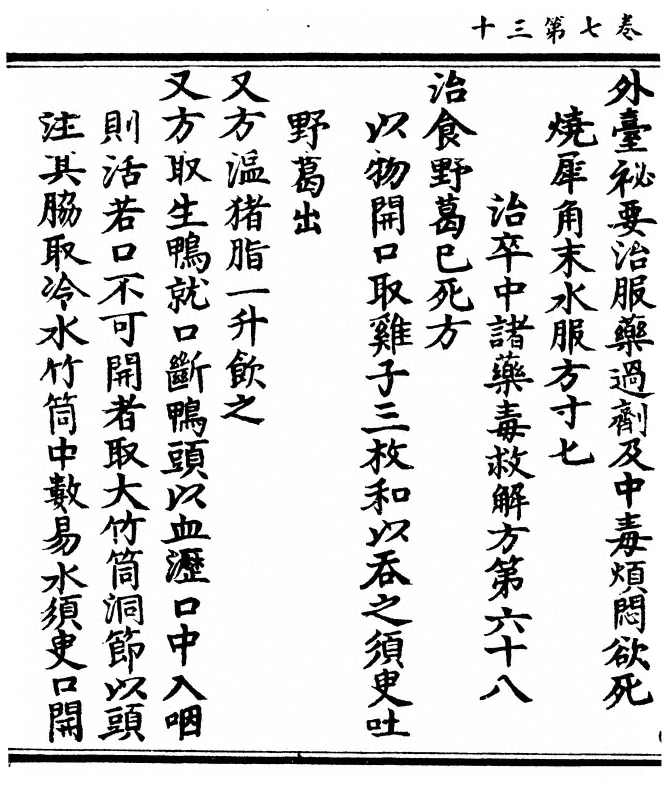 卷七第三十
外臺祕要治服藥過劑及中毒煩悶欲死
燒犀角末水服方寸七
治卒中諸藥毒救解方第六十八
治食野葛已死方
以物開口取雞子三枚和以吞之須臾吐
野葛出
又方溫猪脂一升飲之
又方取生鴨就口斷鴨頭以血瀝口中入咽
則活若口不可開者取大竹筒洞節以頭
注其脇取冷水竹筒中數易水須臾口開